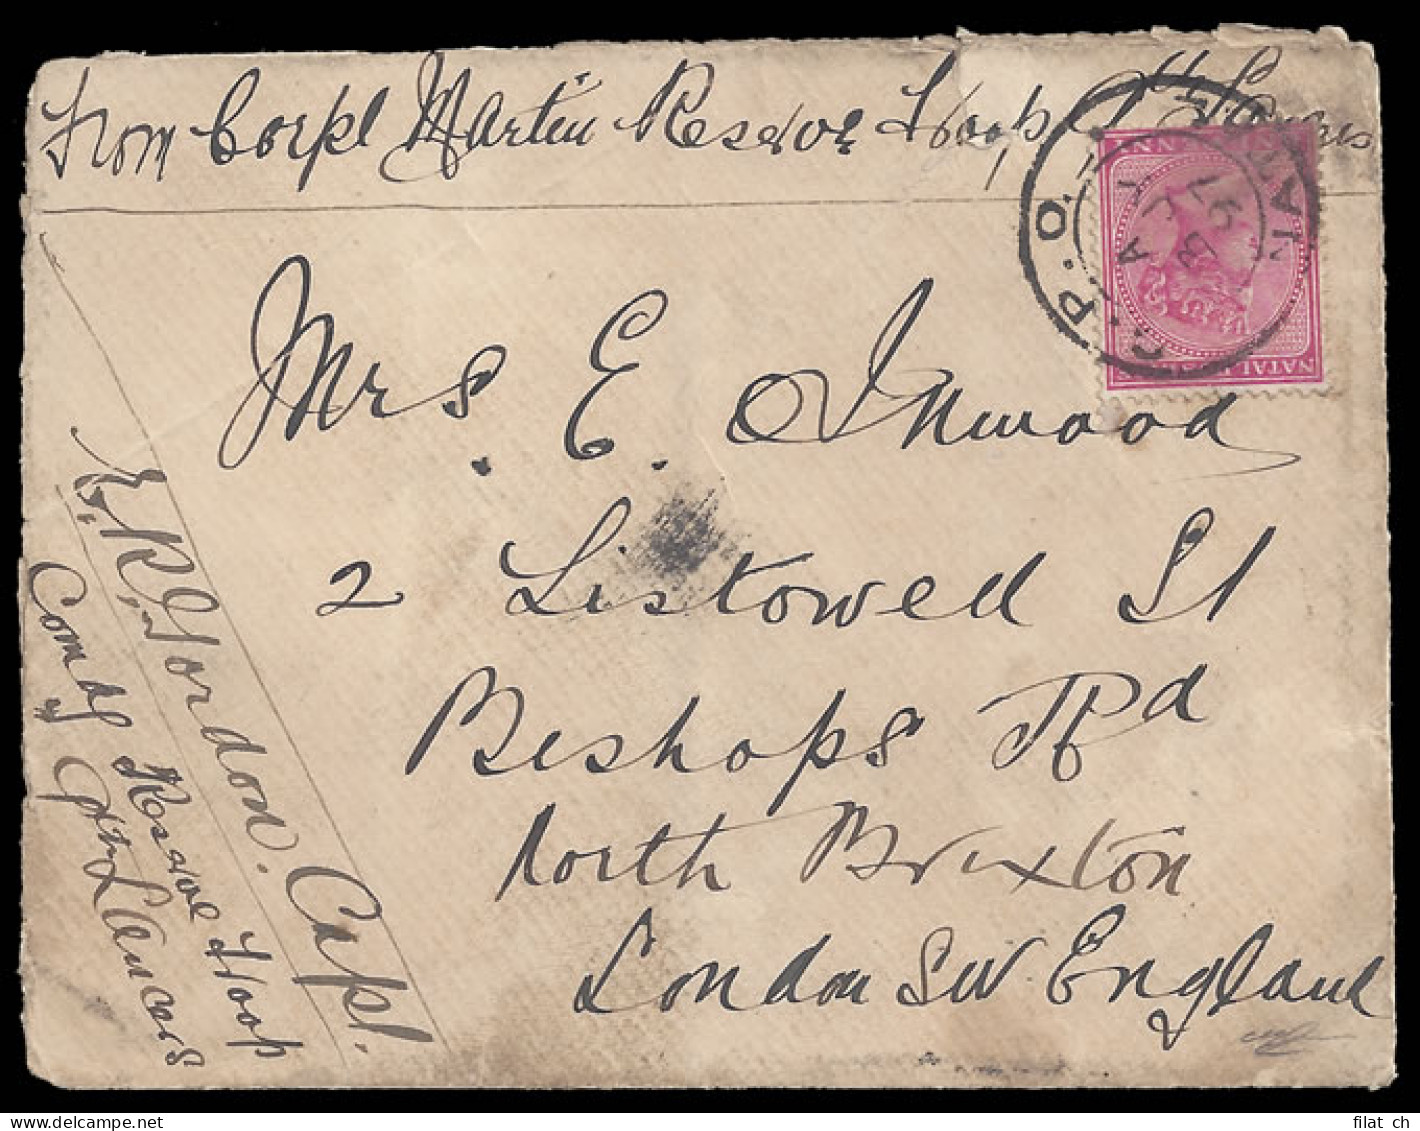 From Corpl Martin Reserve Troop 9th Lancers
G.P.O. NATAL
AU 3 97
NATAL
Mrs. E. Inwood
2 Listowell St
Bishops Rd
North Brixton
London SW. England
E. R. Gordon. Capt.
Comdg Reserve Troop
9th Lancers
filat ch